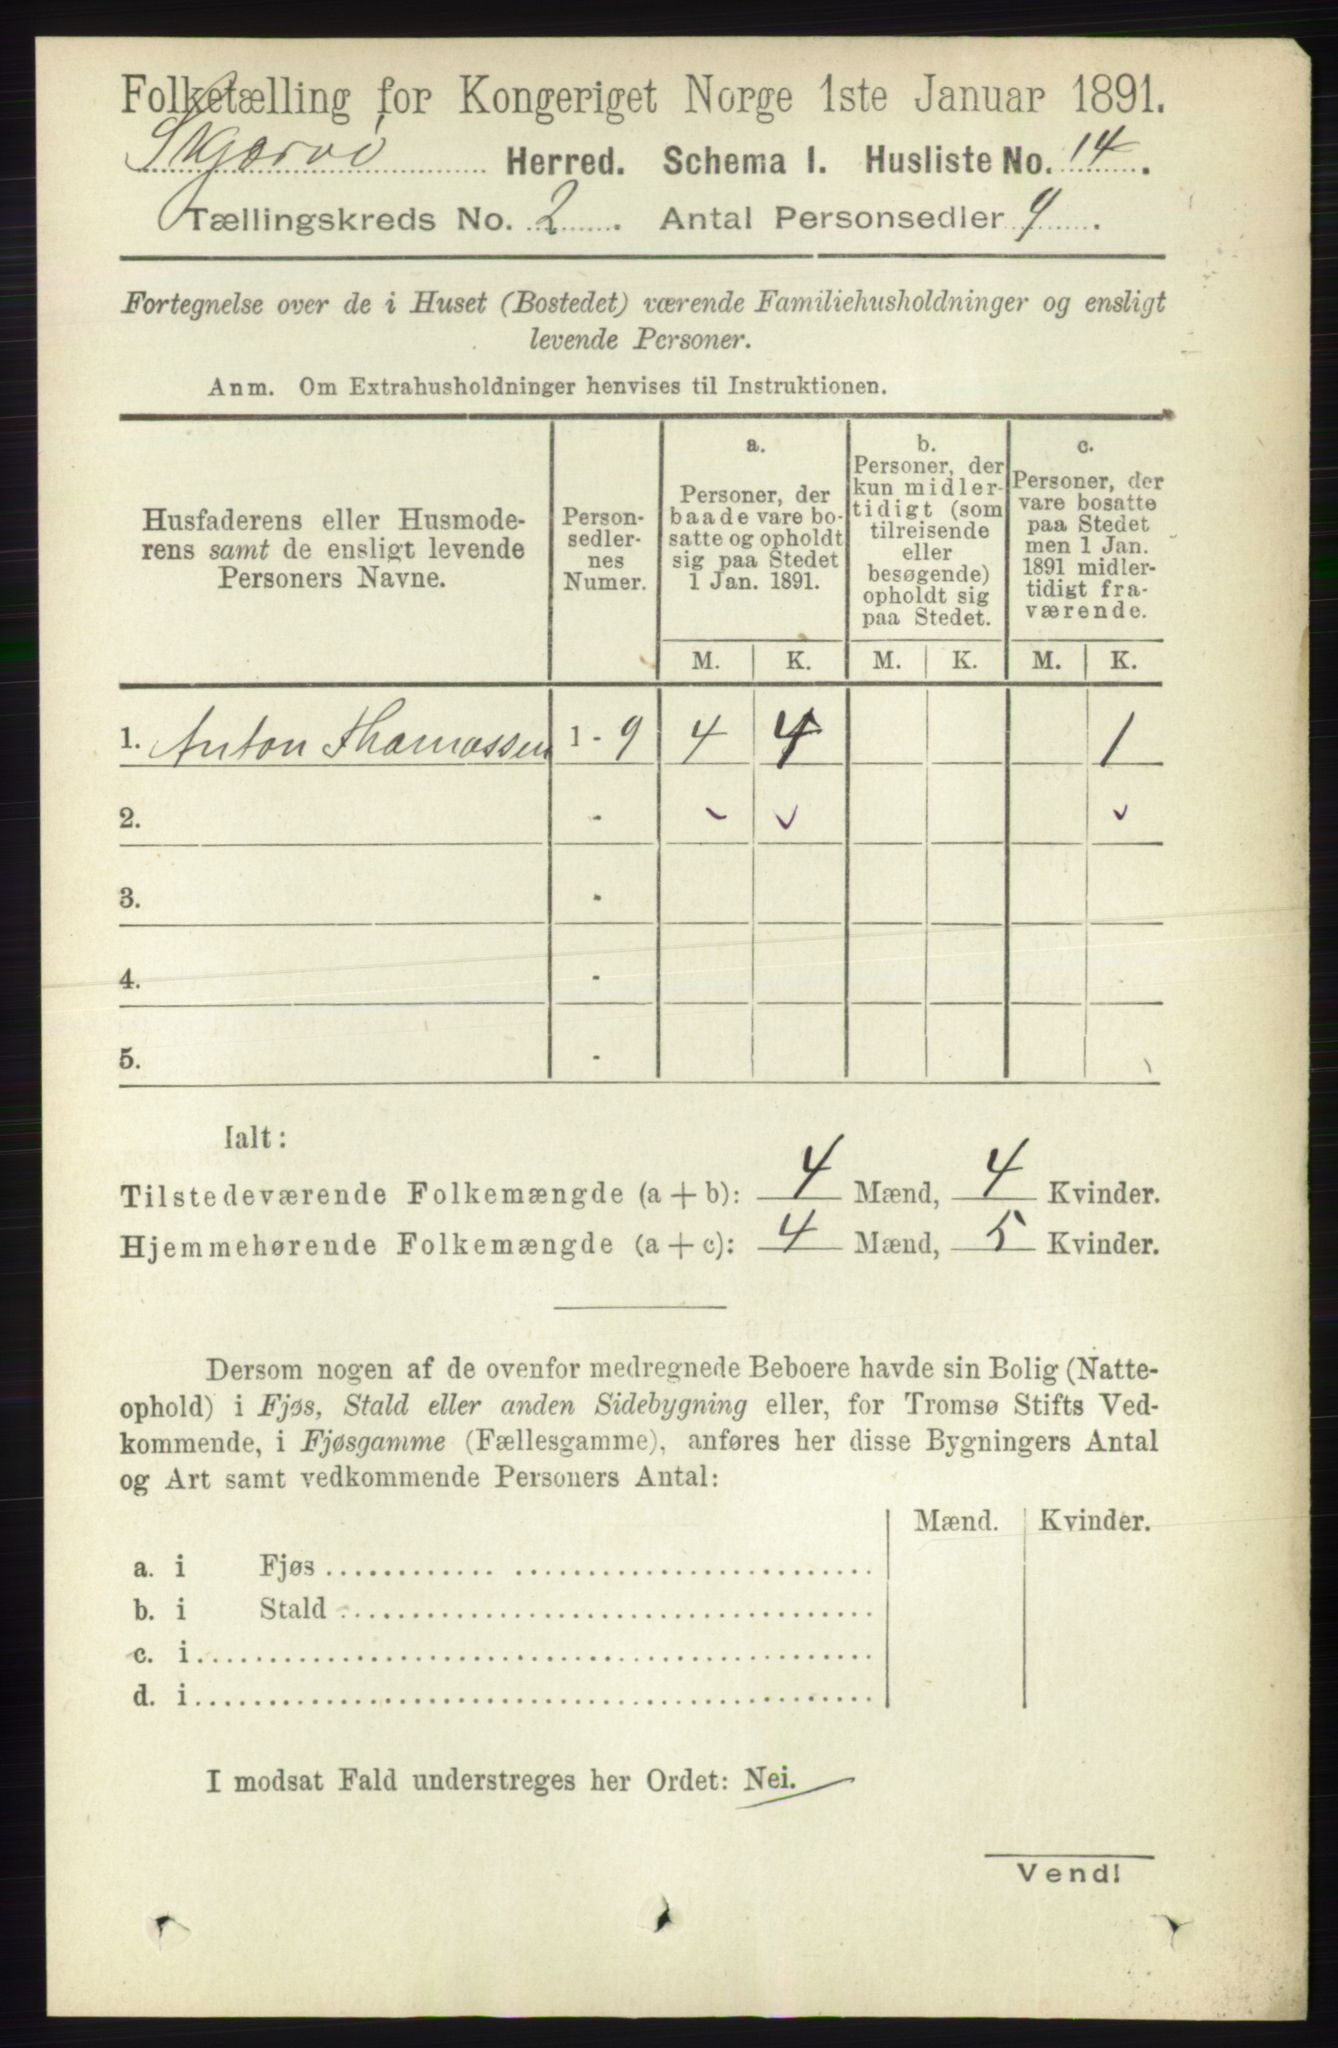 Folketælling for Kongeriget Norge 1ste Januar 1891.
Skjærvø Herred. Schema I. Husliste No. 14.
Tællingskreds No. 2. Antal Personsedler 9.
Fortegnelse over de i Huset (Bostedet) værende Familiehusholdninger og ensligt
levende Personer.
Anm. Om Extrahusholdninger henvises til Instruktionen.
Husfaderens eller Husmode-
rens samt de ensligt levende
Personers Navne.
Person-
sedler-
nes
Numer.
a.
Personer, der
baade vare bo-
satte og opholdt
sig paa Stedet
1 Jan. 1891.
b.
Personer, der
kun midler-
tidigt (som
tilreisende
eller
besøgende)
opholdt sig
paa Stedet.
c.
Personer, der
vare bosatte
paa Stedet
men 1 Jan.
1891 midler-
tidigt fra-
værende.
M. K. M. K. M. K.
1. Anton Thomassen 1 - 9 4 4 1
2. -
3. -
4. -
5. -
Ialt:
Tilstedeværende Folkemængde (a + b): 4 Mænd, 4 Kvinder.
Hjemmehørende Folkemængde (a + c): 4 Mænd, 5 Kvinder.
Dersom nogen af de ovenfor medregnede Beboere havde sin Bolig (Natte-
ophold) i Fjøs, Stald eller anden Sidebygning eller, for Tromsø Stifts Ved-
kommende, i Fjøsgamme (Fællesgamme), anføres her disse Bygningers Antal
og Art samt vedkommende Personers Antal:
Mænd. Kvinder.
a. i Fjøs
b. i Stald
c. i
d. i
I modsat Fald understreges her Ordet: Nei.
Vend!